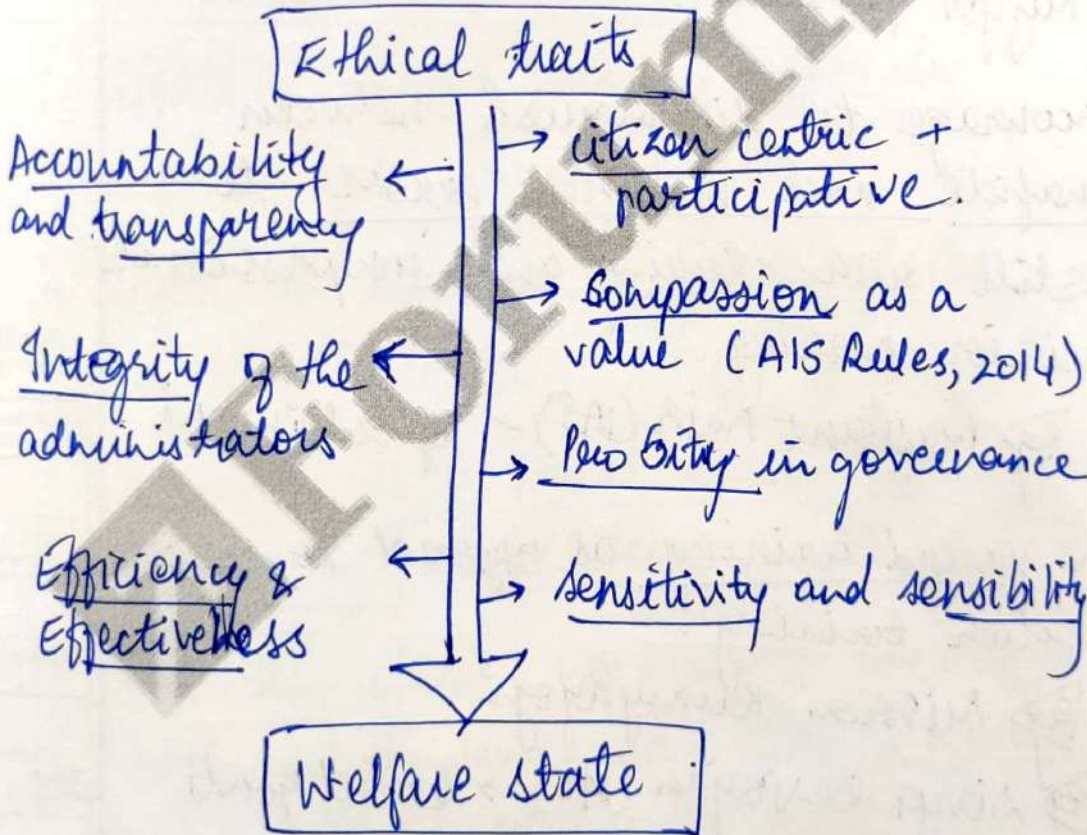 Ethical traits
Accountability
and transparency
Integrity of the
administrators
Efficiency &
Effectiveness
citizen centric +
participative.
Compassion as a
value (AIS Rules, 2014)
Probity in governance
sensitivity and sensibility
Welfare state
ForumIAS